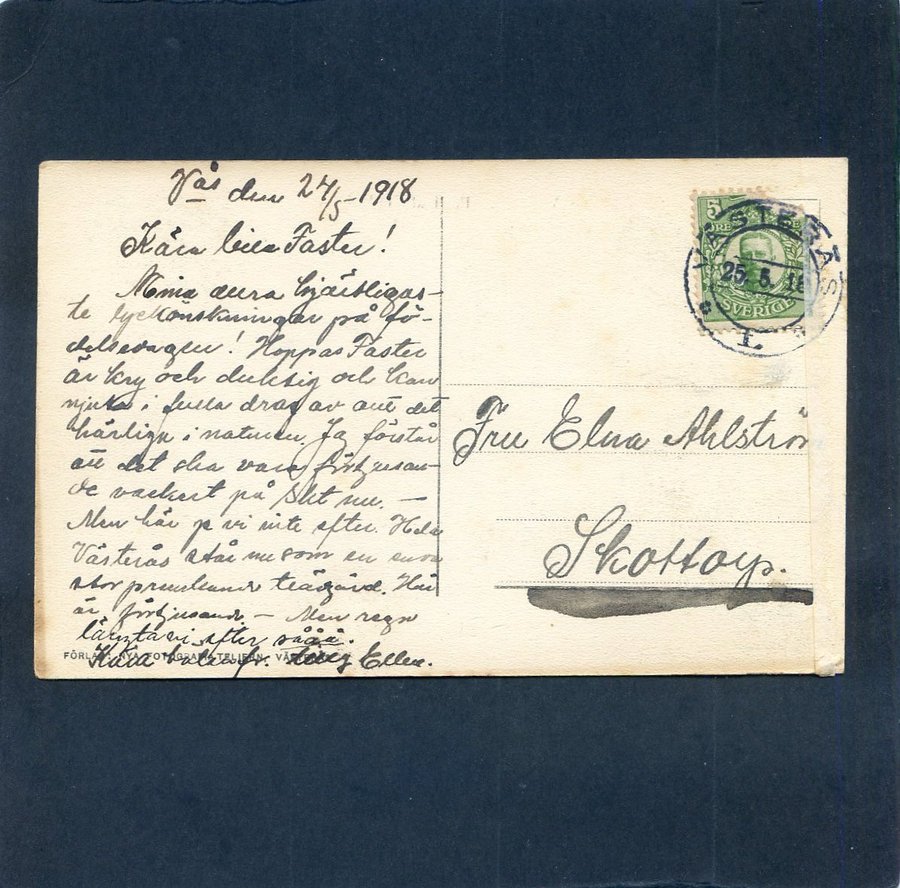 Vås den 24/5-1918
Kära lilla Faster!
Mina allra hjärtligas-
te lyckönskningar på fö-
delsedagen! Hoppas Faster
är kry och duktig och kan
njuta i fulla drag av allt det
härliga i naturen. Jag förstår
att det ska vara förtjusan-
de vackert på slätt nu. —
Men här ge vi inte efter. Hela
Västerås står nu som en enda
stor prunkande trädgård. Här
är förtjusande. — Men regn
längta vi efter såää.
Kära hälsn. fr. Ellen.
FÖRLAG: NYA FOTOGRAFIATELJEEN, VÄSTERÅS
5
ÖRE
SVERIGE
VÄSTERÅS
25. 5. 18
1.
Fru Elna Ahlström
Skottorp.